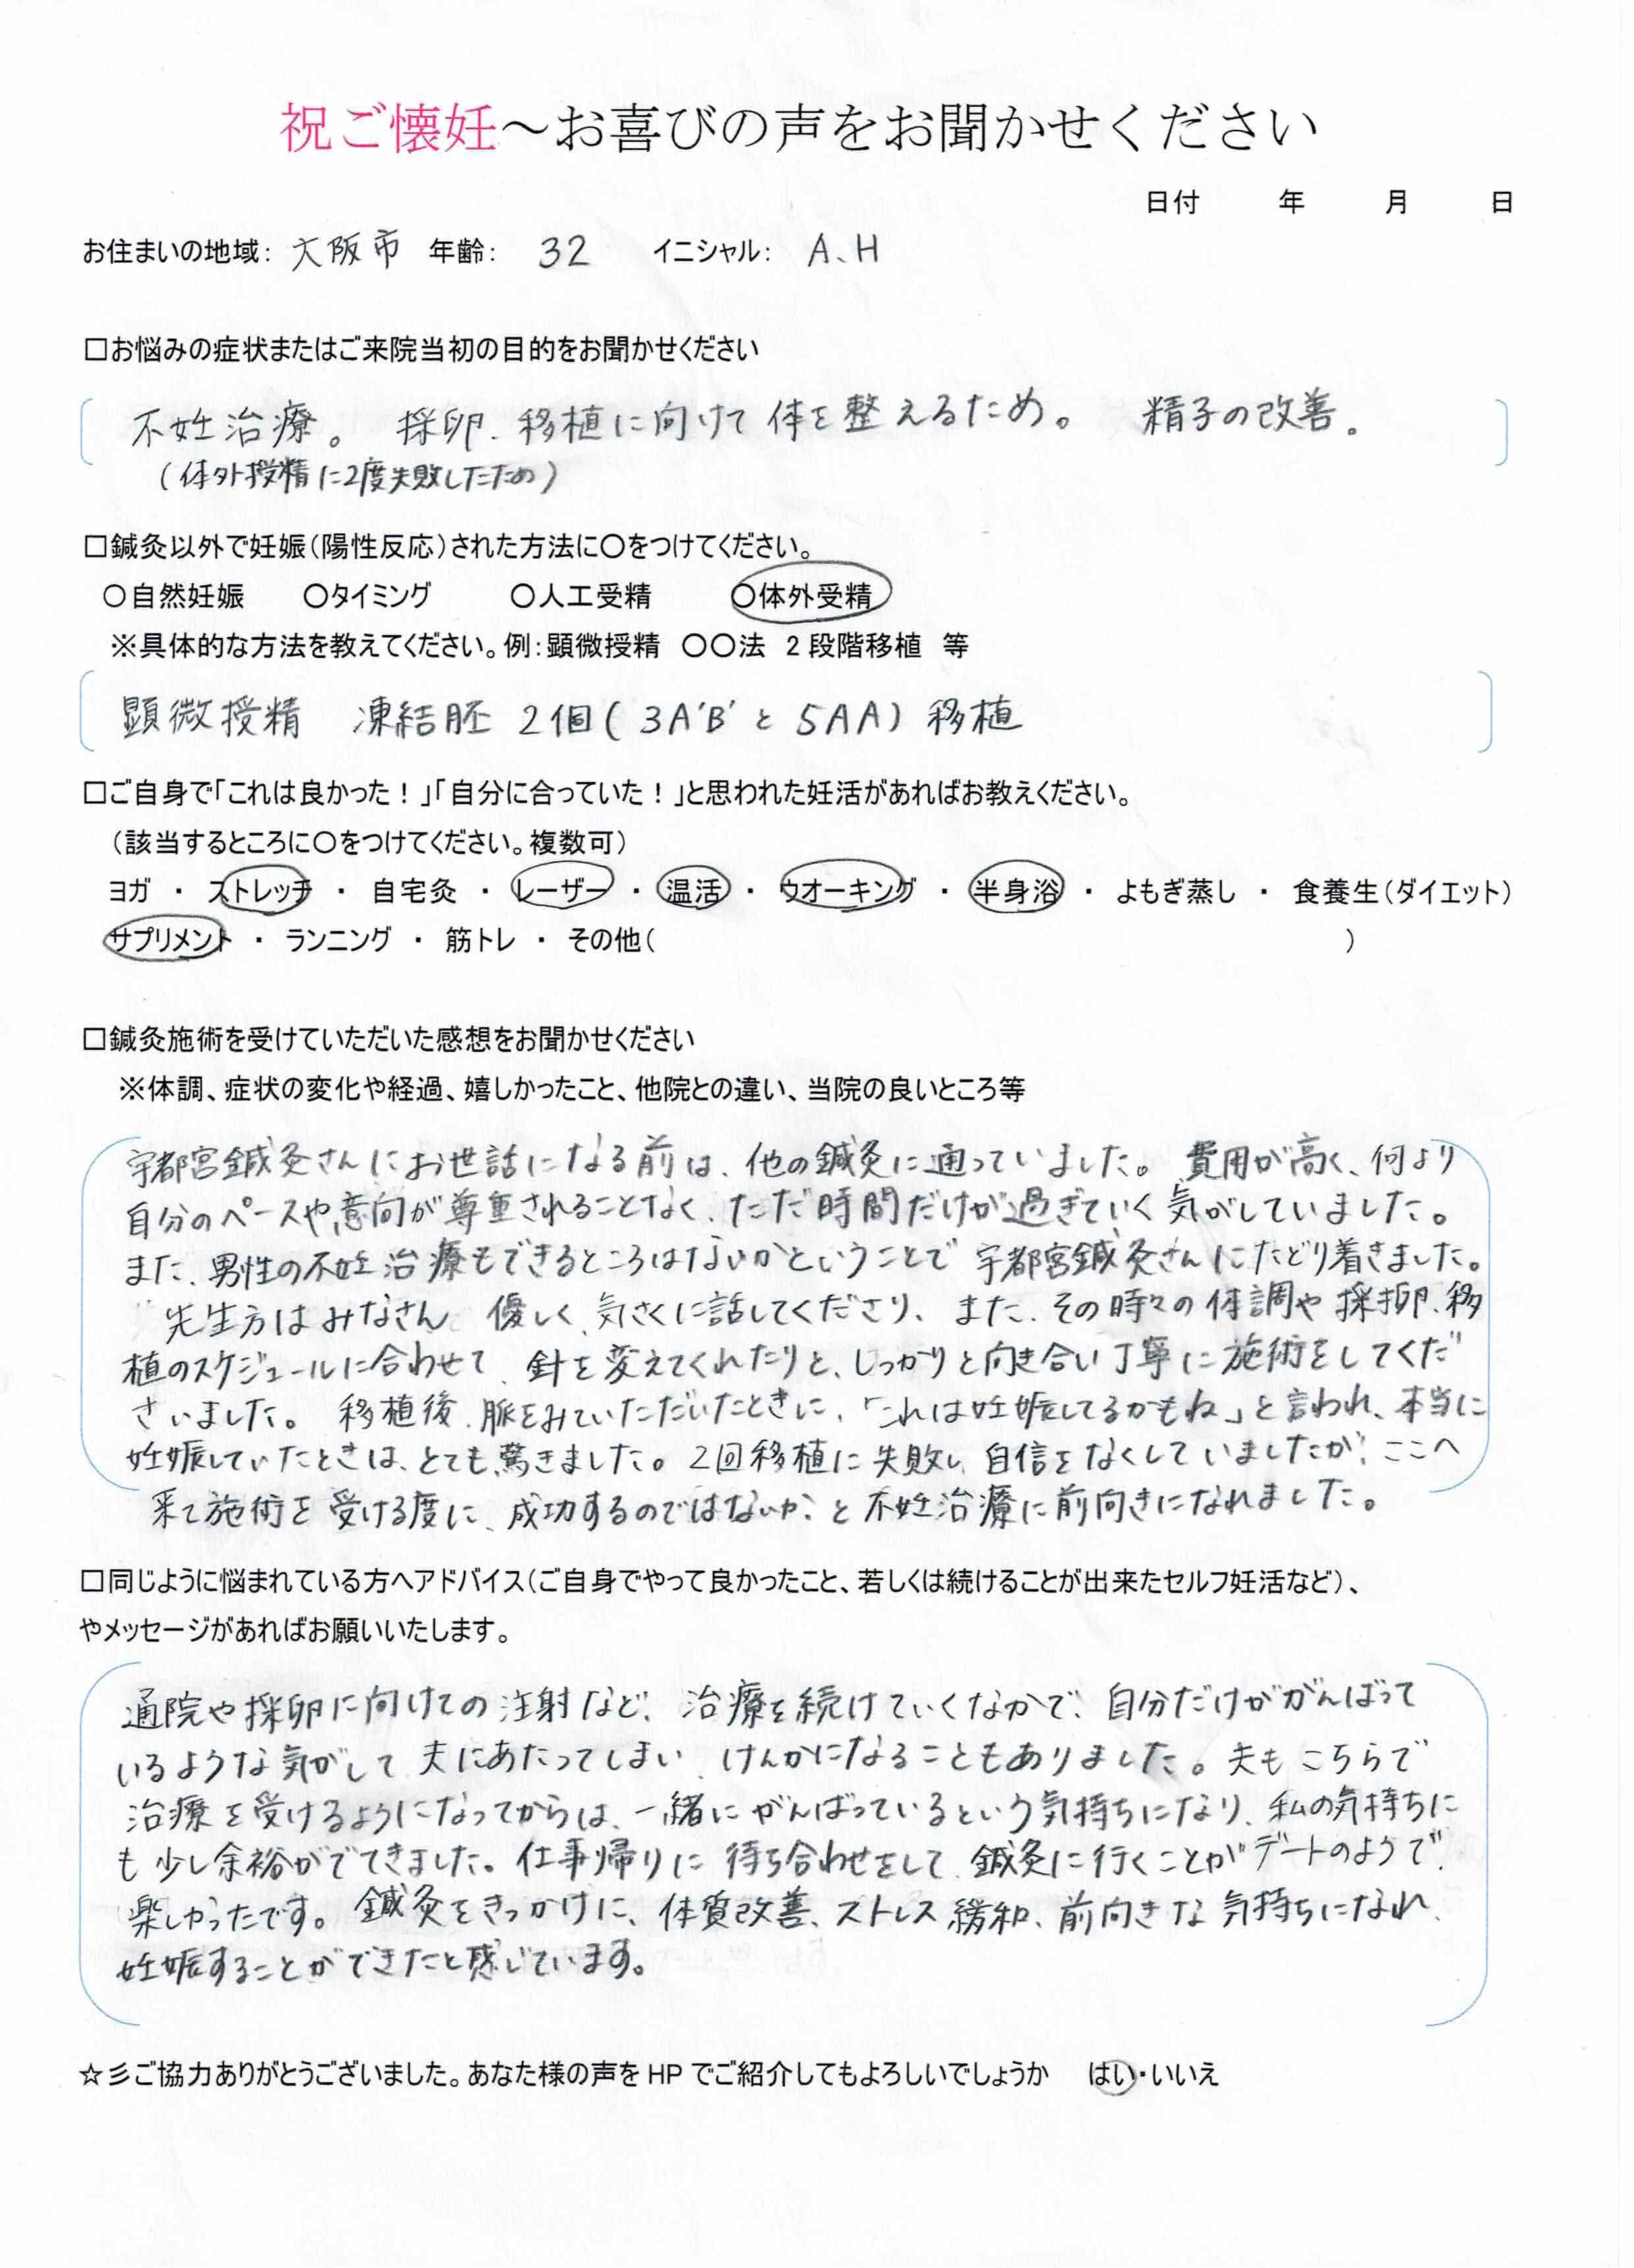 祝ご懐妊～お喜びの声をお聞かせください
日付 年 月 日
お住まいの地域: 大阪市 年齢: 32 イニシャル: A、H
□お悩みの症状またはご来院当初の目的をお聞かせください
不妊治療。 採卵、移植に向けて体を整えるため。 精子の改善。
(体外授精に2度失敗したため)
□鍼灸以外で妊娠(陽性反応)された方法に○をつけてください。
○自然妊娠 ○タイミング ○人工受精 ○体外受精
※具体的な方法を教えてください。例:顕微授精 ○○法 2段階移植 等
顕微授精 凍結胚 2個(3A'B'と5AA)移植
□ご自身で「これは良かった!」「自分に合っていた!」と思われた妊活があればお教えください。
(該当するところに○をつけてください。複数可)
ヨガ ・ ストレッチ ・ 自宅灸 ・ レーザー ・ 温活 ・ ウオーキング ・ 半身浴 ・ よもぎ蒸し ・ 食養生(ダイエット)
サプリメント ・ ランニング ・ 筋トレ ・ その他( )
□鍼灸施術を受けていただいた感想をお聞かせください
※体調、症状の変化や経過、嬉しかったこと、他院との違い、当院の良いところ等
宇都宮鍼灸さんにお世話になる前は、他の鍼灸に通っていました。費用が高く、何より
自分のペースや意向が尊重されることなく、ただ時間だけが過ぎていく気がしていました。
また、男性の不妊治療もできるところはないかということで宇都宮鍼灸さんにたどり着きました。
先生方はみなさん 優しく、気さくに話してくださり、また、その時々の体調や採卵、移
植のスケジュールに合わせて、針を変えてくれたりと、しっかりと向き合い丁寧に施術をしてくだ
さいました。 移植後、脈をみていただいたときに、「これは妊娠してるかもね」と言われ、本当に
妊娠していたときは、とても驚きました。2回移植に失敗し、自信をなくしていましたが、ここへ
来て施術を受ける度に、成功するのではないか、と不妊治療に前向きになれました。
□同じように悩まれている方へアドバイス(ご自身でやって良かったこと、若しくは続けることが出来たセルフ妊活など)、
やメッセージがあればお願いいたします。
通院や採卵に向けての注射など、治療を続けていくなかで、自分だけががんばって
いるような気がして夫にあたってしまい、けんかになることもありました。夫もこちらで
治療を受けるようになってからは、一緒にがんばっているという気持ちになり、私の気持ちに
も少し余裕がでてきました。仕事帰りに待ち合わせをして、鍼灸に行くことがデートのようで、
楽しかったです。鍼灸をきっかけに、体質改善、ストレス緩和、前向きな気持ちになれ、
妊娠することができたと感じています。
☆彡ご協力ありがとうございました。あなた様の声をHPでご紹介してもよろしいでしょうか はい・いいえ